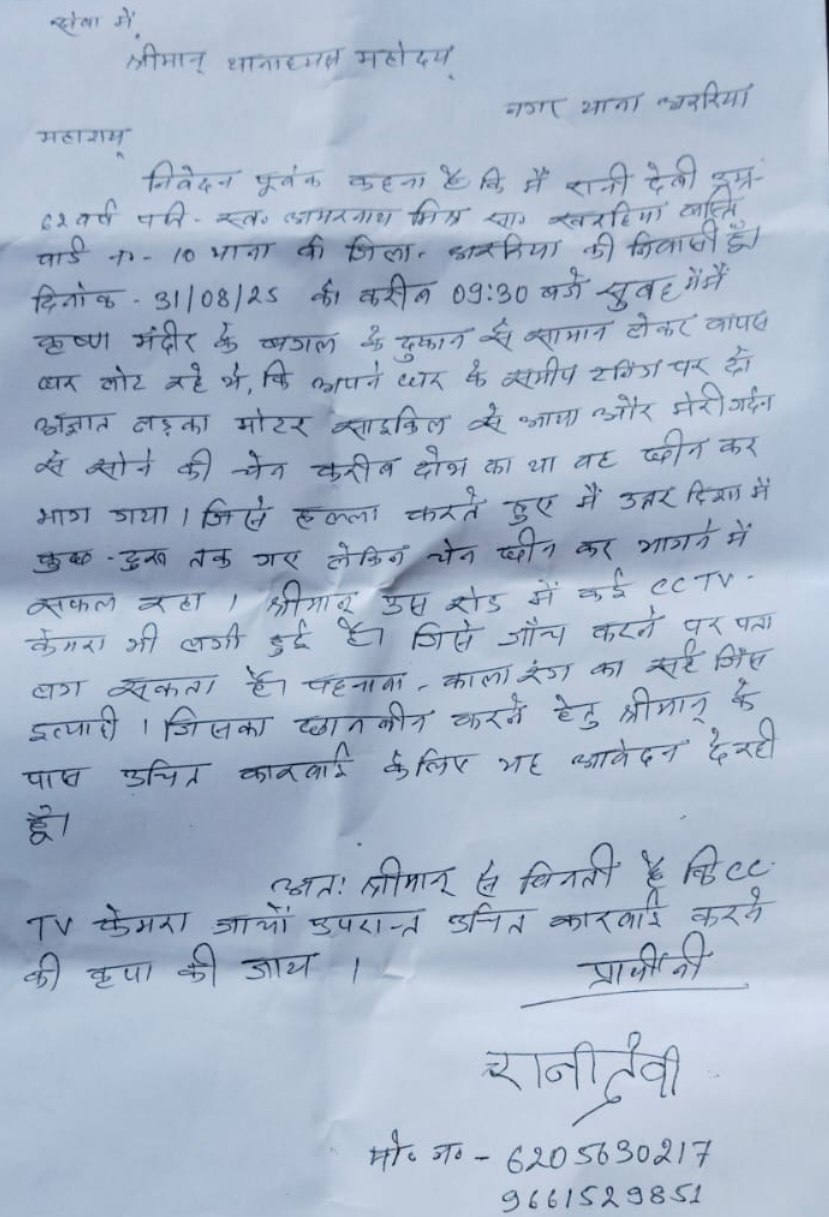 सेवा में,
श्रीमान् थानाध्यक्ष महोदय,
नगर थाना अररिया
महाशय,
निवेदन पूर्वक कहना है कि मैं रानी देवी उम्र-
62 वर्ष पति- स्व॰ अमरनाथ मिश्र सा॰ खरहिया बस्ति
वार्ड न- 10 थाना वो जिला- अररिया की निवासी हूँ।
दिनांक - 31/08/25 को करीब 09:30 बजे सुबह में मैं
कृष्ण मंदीर के बगल के दुकान से सामान लेकर वापस
घर लोट रहे थे, कि अपने घर के समीप टर्निंग पर दो
अज्ञात लड़का मोटर साइकिल से आया और मेरी गर्दन
से सोने की चेन करीब दो भर का था वह छीन कर
भाग गया। जिसे हल्ला करते हुए मैं उत्तर दिशा में
कुछ - दुर तक गए लेकिन चेन छीन कर भागने में
सफल रहा। श्रीमान् उस रोड में कई CCTV-
केमरा भी लगी हुई है। जिसे जाँच करने पर पता
लग सकता है। पहनावा - काला रंग का सर्ट जिंस
इत्यादी। जिसका छानबीन करने हेतु श्रीमान् के
पास उचित कारवाई के लिए यह आवेदन दे रही
हूँ।
अतः श्रीमान् से विनती है कि CC-
TV केमरा जाचों उपरान्त उचित कारवाई करने
की कृपा की जाय।
प्रार्थीनी
रानी देवी
मो॰ न॰ - 6205630217
9661529851